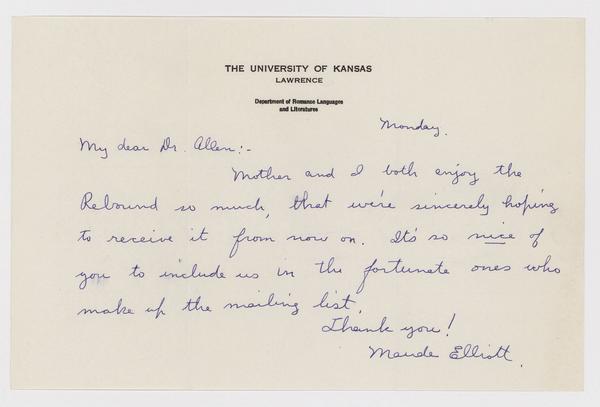 THE UNIVERSITY OF KANSAS
LAWRENCE
Department of Romance Languages
and Literatures
Monday.
My dear Dr. Allen:-
Mother and I both enjoy the
Rebound so much, that we're sincerely hoping
to receive it from now on. It's so nice of
you to include us in the fortunate ones who
make up the mailing list.
Thank you!
Maude Elliott.